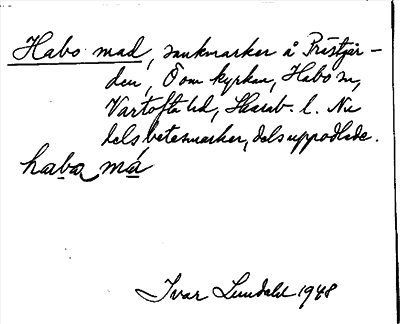 Habo mad, sankmarker å Prästgår-
den, Ö om kyrkan, Habo sn,
Vartofta hd, Skarab. l. Nu
dels betesmarker, dels uppodlade.
haba má
Ivar Lundahl 1948